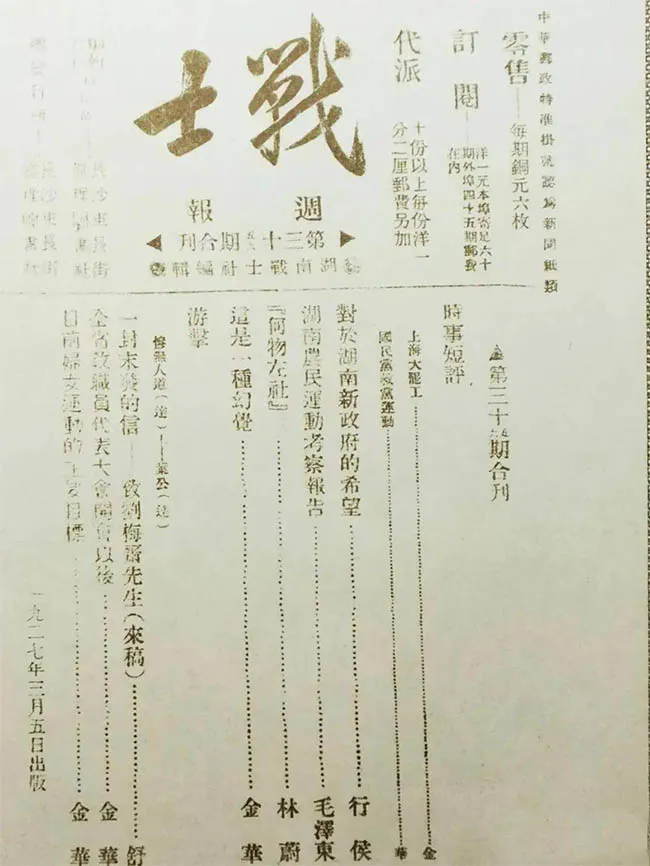 中華郵政特准掛號認爲新聞紙類
零售——每期銅元六枚
訂閱——洋一元本埠寄足六十期外埠四十五期郵費在內
代派 十份以上每份洋一分二厘郵費另加
戰士
週報
第三十五六期合刊
湖南戰士社編輯
長沙東長街
長沙東長街
第三十五六期合刊
時事短評
上海大罷工 金
國民黨救黨運動 華
對於湖南新政府的希望 行侯
湖南農民運動考察報告 毛澤東
『何物左社』 林蔚
這是一種幻覺 金華
游擊
慘無人道(達)——葉公(達)
一封未發的信——致劉梅齋先生(來稿) 舒
全省教職員代表大會開會以後 金華
目前婦女運動的主要目標 金華
一九二七年三月五日出版